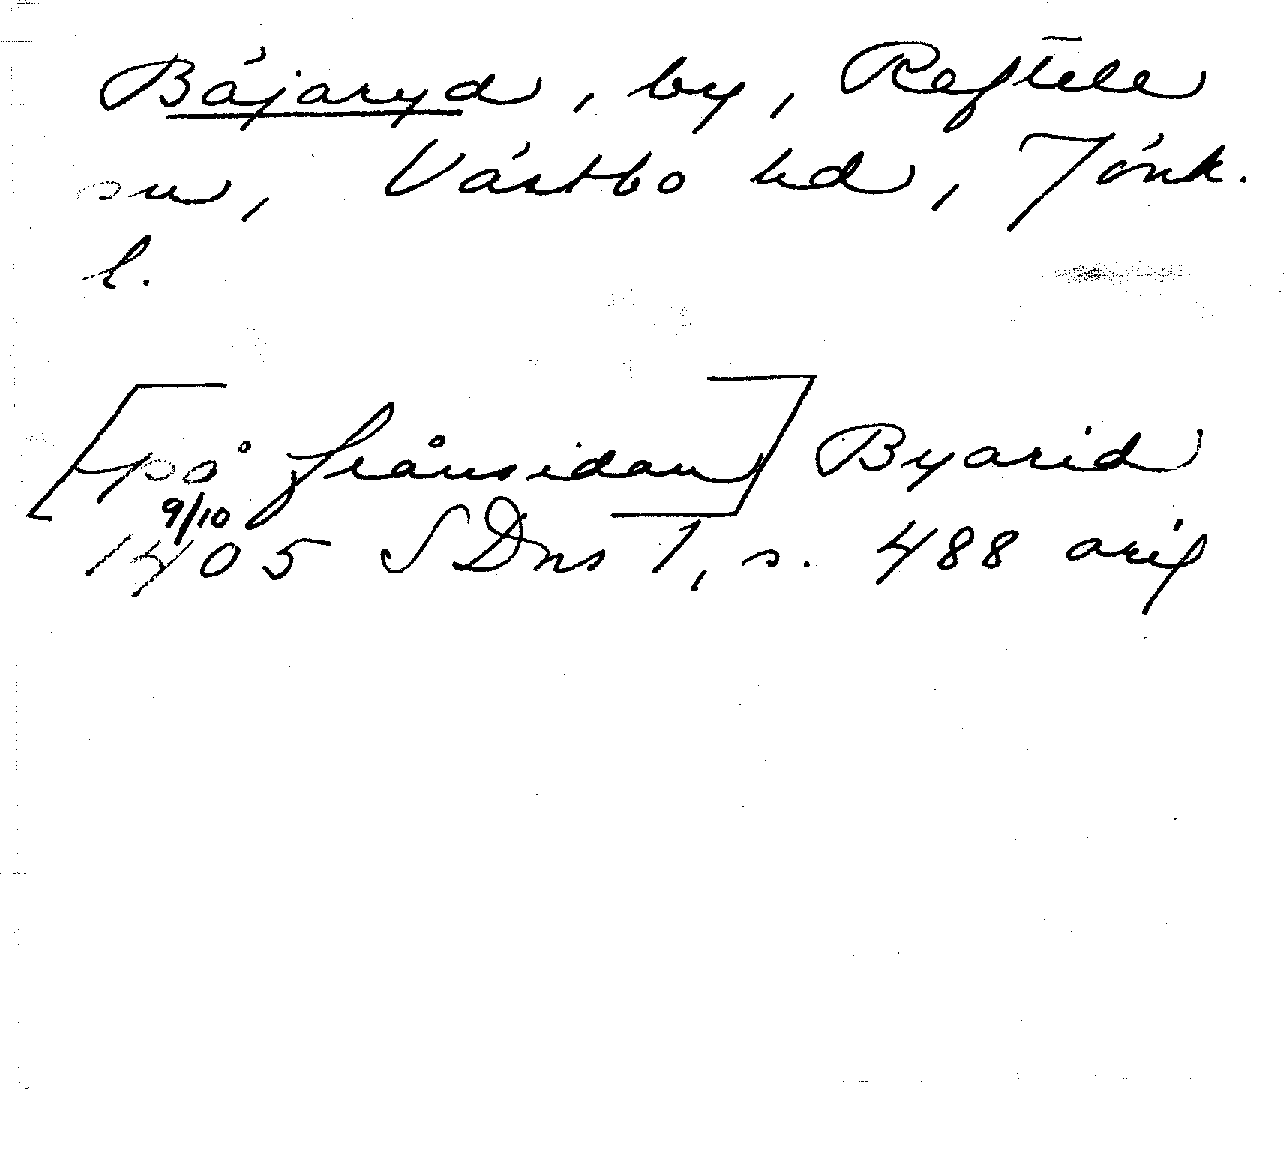 Bäjaryd, by, Reftele
sn, Västbo hd, Jönk.
l.
[på frånsidan] Byarid
9/10
1405 SDns 1, s. 488 orig